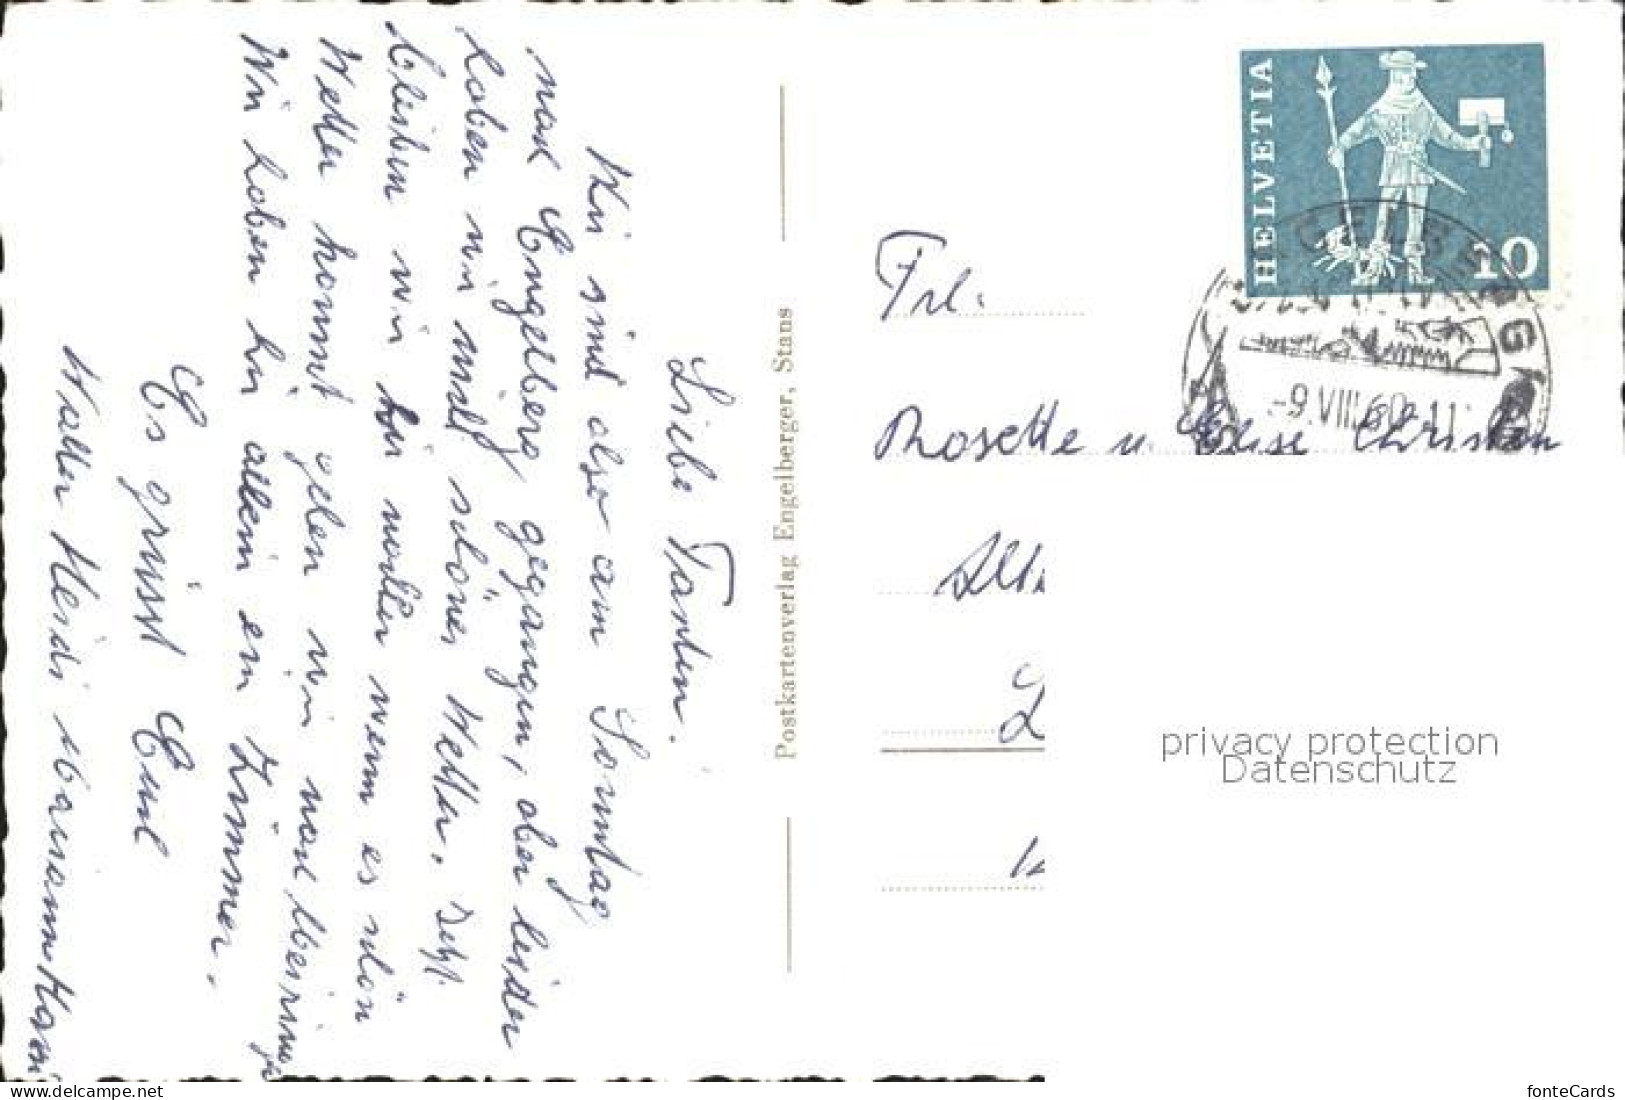 Liebe Tanten.
Wir sind also am Sonntag
nach Engelberg gegangen, aber leider
haben wir nicht schönes Wetter. Jetzt
bleiben wir hir wen es schön
Wetter kommt gehen wir nach Meiringen
Wir haben hir allein ein Zimmer.
Es grüsst Euch
Walter Heidi Hansi
Postkartenverlag Engelberger, Stans
HELVETIA
10
-9.VIII.60-11
Frl.
Rosette u. Elise Christen
privacy protection
Datenschutz
www.delcampe.net
fonteCards